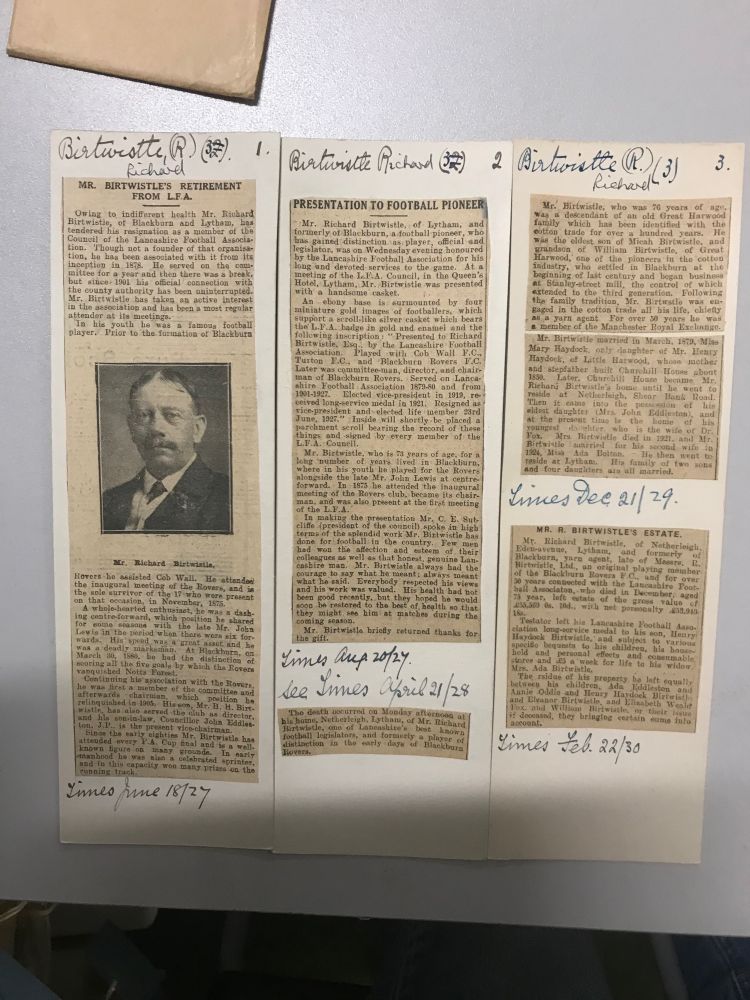 Birtwistle, (R.) (3). 1.
Richard
MR. BIRTWISTLE'S RETIREMENT
FROM L.F.A.
Owing to indifferent health Mr. Richard
Birtwistle, of Blackburn and Lytham, has
tendered his resignation as a member of the
Council of the Lancashire Football Associa-
tion. Though not a founder of that organisa-
tion, he has been associated with it from its
inception in 1878. He served on the com-
mittee for a year and then there was a break,
but since 1901 his official connection with
the county authority has been uninterrupted.
Mr. Birtwistle has taken an active interest
in the association and has been a most regular
attender at its meetings.
In his youth he was a famous football
player. Prior to the formation of Blackburn
Mr. Richard Birtwistle.
Rovers he assisted Cob Wall. He attended
the inaugural meeting of the Rovers, and is
the sole survivor of the 17 who were present
on that occasion, in November, 1875.
A whole-hearted enthusiast, he was a dash-
ing centre-forward, which position he shared
for some seasons with the late Mr. John
Lewis in the period when there were six for-
wards. His speed was a great asset and he
was a deadly marksman. At Blackburn, on
March 30, 1880, he had the distinction of
scoring all the five goals by which the Rovers
vanquished Notts Forest.
Continuing his association with the Rovers,
he was first a member of the committee and
afterwards chairman, which position he
relinquished in 1905. His son, Mr. H. H. Birt-
wistle, has also served the club as director,
and his son-in-law, Councillor John Eddles-
ton, J.P., is the present vice-chairman.
Since the early eighties Mr. Birtwistle has
attended every F.A. Cup final and is a well-
known figure on many grounds. In early
manhood he was also a celebrated sprinter,
and in this capacity won many prizes on the
running track.
Times June 18/27
Birtwistle Richard (32) 2
PRESENTATION TO FOOTBALL PIONEER
Mr. Richard Birtwistle, of Lytham, and
formerly of Blackburn, a football pioneer, who
has gained distinction as player, official and
legislator, was on Wednesday evening honoured
by the Lancashire Football Association for his
long and devoted services to the game. At a
meeting of the L.F.A. Council, in the Queen's
Hotel, Lytham, Mr. Birtwistle was presented
with a handsome casket.
An ebony base is surmounted by four
miniature gold images of footballers, which
support a scroll-like silver casket which bears
the L.F.A. badge in gold and enamel and the
following inscription: "Presented to Richard
Birtwistle, Esq., by the Lancashire Football
Association. Played with Cob Wall F.C.,
Turton F.C., and Blackburn Rovers F.C.
Later was committee-man, director, and chair-
man of Blackburn Rovers. Served on Lanca-
shire Football Association 1879-80 and from
1901-1927. Elected vice-president in 1919, re-
ceived long-service medal in 1921. Resigned as
vice-president and elected life member 23rd
June, 1927." Inside will shortly be placed a
parchment scroll bearing the record of these
things and signed by every member of the
L.F.A. Council.
Mr. Birtwistle, who is 73 years of age, for a
long number of years lived in Blackburn,
where in his youth he played for the Rovers
alongside the late Mr. John Lewis at centre-
forward. In 1875 he attended the inaugural
meeting of the Rovers club, became its chair-
man, and was also present at the first meeting
of the L.F.A.
In making the presentation Mr. C. E. Sut-
cliffe (president of the council) spoke in high
terms of the splendid work Mr. Birtwistle has
done for football in the country. Few men
had won the affection and esteem of their
colleagues as well as that honest, genuine Lan-
cashire man. Mr. Birtwistle always had the
courage to say what he meant; always meant
what he said. Everybody respected his views
and his work was valued. His health had not
been good recently, but they hoped he would
soon be restored to the best of health so that
they might see him at matches during the
coming season.
Mr. Birtwistle briefly returned thanks for
the gift.
Times Aug 20/27.
See Times April 21/28
The death occurred on Monday afternoon at
his home, Netherleigh, Lytham, of Mr. Richard
Birtwistle, one of Lancashire's best known
football legislators, and formerly a player of
distinction in the early days of Blackburn
Rovers.
Birtwistle (R.) (3) 3.
Richard
Mr. Birtwistle, who was 76 years of age,
was a descendant of an old Great Harwood
family which has been identified with the
cotton trade for over a hundred years. He
was the eldest son of Micah Birtwistle, and
grandson of William Birtwistle, of Great
Harwood, one of the pioneers in the cotton
industry, who settled in Blackburn at the
beginning of last century and began business
at Stanley-street mill, the control of which
extended to the third generation. Following
the family tradition, Mr. Birtwistle was en-
gaged in the cotton trade all his life, chiefly
as a yarn agent. For over 50 years he was
a member of the Manchester Royal Exchange.
Mr. Birtwistle married in March, 1879, Miss
Mary Haydock, only daughter of Mr. Henry
Haydock, of Little Harwood, whose mother
and stepfather built Churchill House about
1850. Later, Churchill House became Mr.
Richard Birtwistle's home until he went to
reside at Netherleigh, Shear Bank Road.
Then it came into the possession of his
eldest daughter (Mrs. John Eddleston), and
at the present time is the home of his
youngest daughter, who is the wife of Dr.
Fox. Mrs Birtwistle died in 1921, and Mr.
Birtwistle married for his second wife in
1924, Miss Ada Bolton. He then went to
reside at Lytham. His family of two sons
and four daughters are all married.
Times Dec 21/29.
MR. R. BIRTWISTLE'S ESTATE.
Mr. Richard Birtwistle, of Netherleigh,
Eden-avenue, Lytham, and formerly of
Blackburn, yarn agent, late of Messrs. R.
Birtwistle, Ltd., an original playing member
of the Blackburn Rovers F.C., and for over
50 years connected with the Lancashire Foot-
ball Association, who died in December, aged
75 year, left estate of the gross value of
with net personalty
Testator left his Lancashire Football Asso-
ciation long-service medal to his son, Henry
Haydock Birtwistle, and subject to various
specific bequests to his children, his house-
hold and personal effects and consumable
stores and £5 a week for life to his widow,
Mrs. Ada Birtwistle.
The rsidue of his property he left equally
between his children, Ada Eddleston and
Annie Oddie and Henry Haydock Birtwistle
and Eleanor Birtwistle, and Elizabeth
Fox, and William Birtwistle, or their issue
if deceased, they bringing certain sums into
account.
Times Feb. 22/30